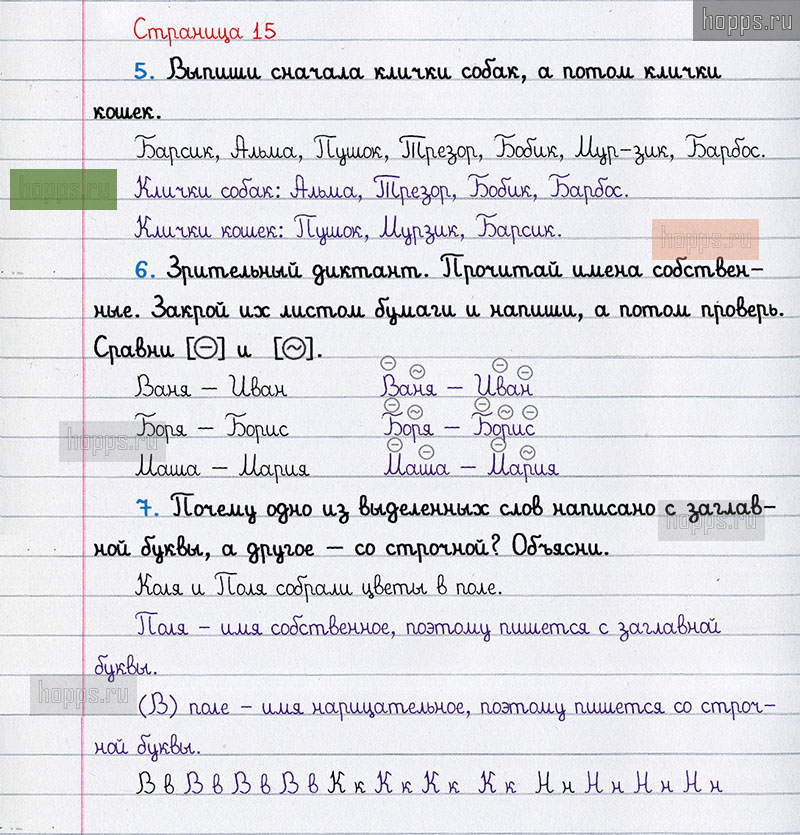 hopps.ru
Страница 15
5. Выпиши сначала клички собак, а потом клички
кошек.
Барсик, Альма, Пушок, Трезор, Бобик, Мур-зик, Барбос.
hopps.ru
Клички собак: Альма, Трезор, Бобик, Барбос.
Клички кошек: Пушок, Мурзик, Барсик.
hopps.ru
6. Зрительный диктант. Прочитай имена собствен-
ные. Закрой их листом бумаги и напиши, а потом проверь.
Сравни [–] и [~].
Ваня – Иван Ваня – Иван
Боря – Борис Боря – Борис
hopps.ru
Маша – Мария Маша – Мария
7. Почему одно из выделенных слов написано с заглав-
hopps.ru
ной буквы, а другое – со строчной? Объясни.
Коля и Поля собрали цветы в поле.
Поля – имя собственное, поэтому пишется с заглавной
буквы.
hopps.ru
(В) поле – имя нарицательное, поэтому пишется со строч-
ной буквы.
В в В в В в В в К к К к К к К к Н н Н н Н н Н н